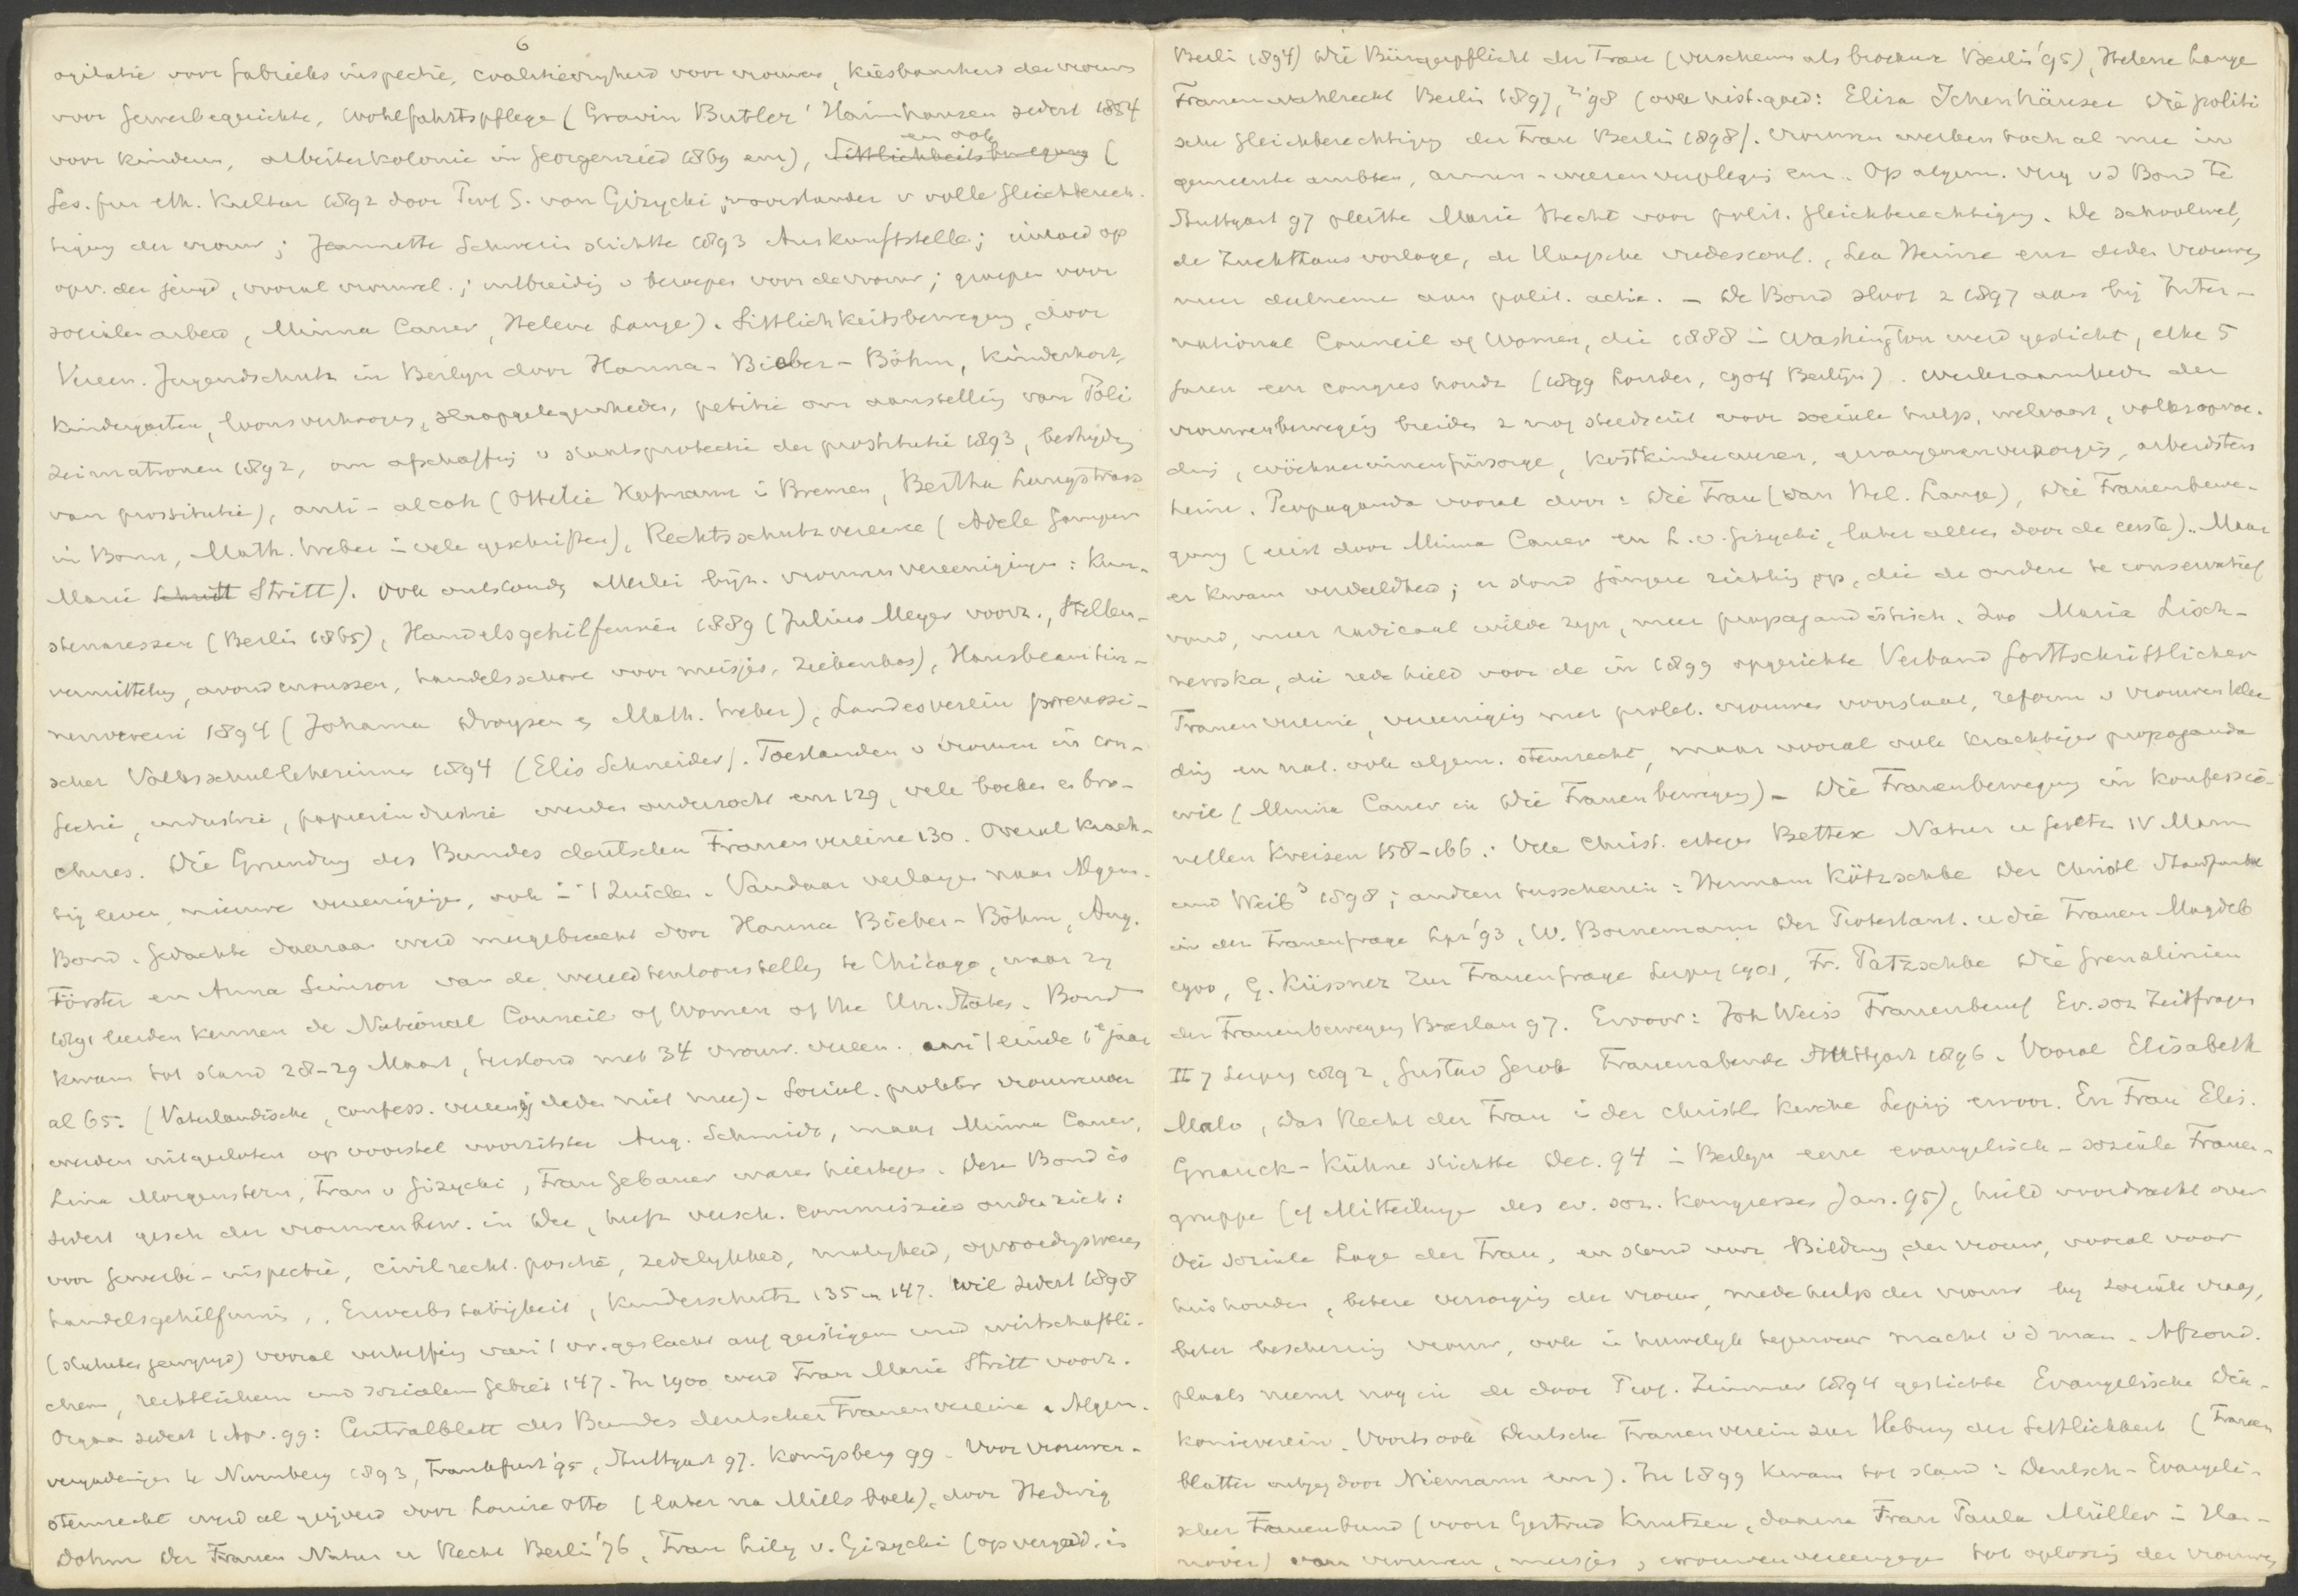 6
agitatie voor fabrieks inspectie, coalitievryheid voor vrouwen, kiesbaarheid der vrouw
voor Gewerbegerichte, Wohlfahrtspflege (Gravin Butler' Haimhausen sedert 1854
voor kinderen, arbeiterkolonie in Georgenried 1869 enz), en ook Sittlichkeitsbewegung (
Ges. fur eth. Kultur 1892 door Prof G. von Gizycki, voorstander v volle Gleichberech-
tigung der vrouw; Jeannette Schwerin stichtte 1893 Auskunftstelle; invloed op
opv. der jeugd, vooral vrouwel.; uitbreidig v beroepen voor de vrouw; groepen voor
socialen arbeid, Minna Cauer, Helene Lange). Sittlichkeitsbewegung, door
Vereen. Jugendschutz in Berlyn door Hanna-Bieber-Böhm, Kinderhort,
Kindergarten, loonsverhooges, slaapgelegenheden, petitie om aanstellig van Poli
zeimatronen 1892, om afschaffig v staatsprotectie der prostitutie 1893, bestryding
van prostitutie), anti-alcoh (Ottilie Hofmann i Bremen, Bertha Lungstrass
in Bonn, Math. Weber i vele geschriften), Rechtsschutzvereine (Adele Gamper
Marie Schritt Stritt). Ook ontstondz allerlei byz. vrouwenvereenigingen: Kun-
stenaressen (Berlin 1865), Handelsgehilfinnen 1889 (Julius Meyer voorz., Stellen-
vermittelung, avondcursussen, handelsschool voor meisjes, ziekenkas), Hausbeamtin-
nenverein 1894 (Johanna Droysen en Math. Weber), Landesverein preussi-
scher Volksschullehrerinnen 1894 (Elis Schneider). Toestanden v vrouwen in con-
fectie, industrie, papierindustrie werden onderzocht enz 129, vele boeken en bro-
chures. Die Grundung des Bundes deutscher Frauenvereine 130. Overal krach-
tig leven, nieuwe vereenigingen, ook i 't Zuiden. Vandaar verlangen naar Algem.
Bond. Gedachte daaraan werd meegebracht door Hanna Bieber-Böhm, Aug.
Förster en Anna Simson van de wereldtentoonstelling te Chicago, waar zy
1891 leerden kennen de National Council of Women of the Un. States. Bond
kwam tot stand 28-29 Maart, bestond met 34 vrouw. vereen. aan 't einde 1e jaar
al 65. (Vaterlandische, confess. vereenig deden niet mee). Social. proletar vrouwenver
werden uitgesloten op voorstel voorzitster Aug. Schmidt, maar Minna Cauer,
Lina Morgenstern, Frau v Gizycki, Frau Gebauer waren hiertegen. Deze Bond is
sedert gesch der vrouwenbew. in Dee, heeft versch. commissies onder zich:
voor Gewerbe-inspectie, civilrecht. positie, zedelykheid, matigheid, opvoedigswezen
handelsgehilfinnen, Erwerbstatigkeit, Kinderschutz 135 en 147. Wil sedert 1898
(statuten gewyzigd) vooral verheffing van 't vr. geslacht auf geistigem und wirtschaftli-
chem, rechtlichem und sozialem Gebiet 147. In 1900 werd Frau Marie Stritt voorz.
Orgaan sedert 1 Apr. 99: Centralblatt des Bundes deutscher Frauenvereine. Algem.
vergaderingen te Nurnberg 1893, Frankfurt '95, Stuttgart 97. Konigsberg 99. Voor vrouwen-
stemrecht werd al geijverd door Louise Otto (later na Mills boek), door Hedwig
Dohm Der Frauen Natur u Recht Berlin '76, Frau Lily v. Gizycki (op vergad. in
Berlin 1894) Die Bürgerpflicht der Frau (verscheen als brochure Berlin '95), Helene Lange
Frauenwahlrecht Berlin 1897, 2'98 (over hist. goed: Eliza Ichenhäuser Die politi
sche Gleichberechtigung der Frau Berlin 1898). Vrouwen werken toch al mee in
gemeente ambten, armen-weezenverpleging enz. Op algem. verg vd Bond te
Stuttgart 97 pleitte Marie Hecht voor polit. Gleichberechtigung. De schoolwet,
de Zuchthausvorlage, de Haagsche vredesconf., Lex Heinze enz deden vrouwen
meer deelneme aan polit. actie. - De Bond sloot z 1897 aan bij Inter-
national Council of Women, die 1888 in Washington werd gesticht, elke 5
jaren een congres houdt (1899 Londen, 1904 Berlijn). Werkzaamheden der
vrouwenbeweging breiden z nog steeds uit voor sociale hulp, welvaart, volksopvoe-
ding, Wöchnerinnenfürsorge, Kostkinderwezen, gevangenenverzorging, arbeidsters
heime. Propaganda vooral door: Die Frau (van Hel. Lange), Die Frauenbewe-
gung (eerst door Minna Cauer en L. v. Gizycki, later alleen door de eerste). Maar
er kwam verdeeldheid; er stond jongere richting op, die de andere te conservatief
vond, meer radicaal wilde zyn, meer propagandistisch. Zoo Maria Lisch-
newska, die rede hield voor de in 1899 opgerichte Verband fortschrittlicher
Frauenvereine, vereeniging met prolet. vrouwen voorstaat, reform v vrouwenklee
ding en nat. ook algem. stemrecht, maar vooral ook krachtiger propaganda
wil (Minna Cauer in Die Frauenbewegung) - Die Frauenbewegung in konfessio-
nellen Kreisen 158-166: Vele Christ. ertegen Bettex Natur u Gesetz IV Mann
und Weib3 1898; andren tusschenin: Hermann Kötzschke Der Christl Standpunkt
in der Frauenfrage Lpz '93, W. Bornemann Der Protestant. u die Frauen Magdeb
1900, G. Küssner Zur Frauenfrage Leipz 1901, Fr. Patzschke Die Grenzlinien
der Frauenbewegung Breslau 97. Ervoor: Joh Weiss Frauenberuf Ev. soz Zeitfragen
II 7 Leipz 1892, Gustav Gerok Frauenabende Stuttgart 1896. Vooral Elisabeth
Malo, Das Recht der Frau i der christl Kirche Leipzig ervoor. En Frau Elis.
Gnauck-Kühne stichtte Dec. 94 i Berlyn eene evangelisch-soziale Frauen-
gruppe (cf Mitteilungen des ev. soz. Kongresses Jan. 95), hield voordracht over
die soziale Lage der Frau, en stond voor Bildung der vrouw, vooral voor
huishouden, betere verzorging der vrouw, medehulp der vrouw by sociale vraag,
beter bescherming vrouw, ook in huwelyk tegenover macht vd man. Afzond.
plaats neemt nog in de door Prof. Zimmer 1894 gestichte Evangelische Dia-
konieverein. Voorts ook Deutsche Frauenverein zur Hebung der Sittlichkeit (Frauen
blatter uitgeg door Niemann enz). In 1899 kwam tot stand: Deutsch-Evangeli-
scher Frauenbund (voorz Gertrud Knutzen, daarna Frau Paula Müller i Han-
nover) van vrouwen, meisjes, vrouwenvereenigingen tot oplossing der vrouwen